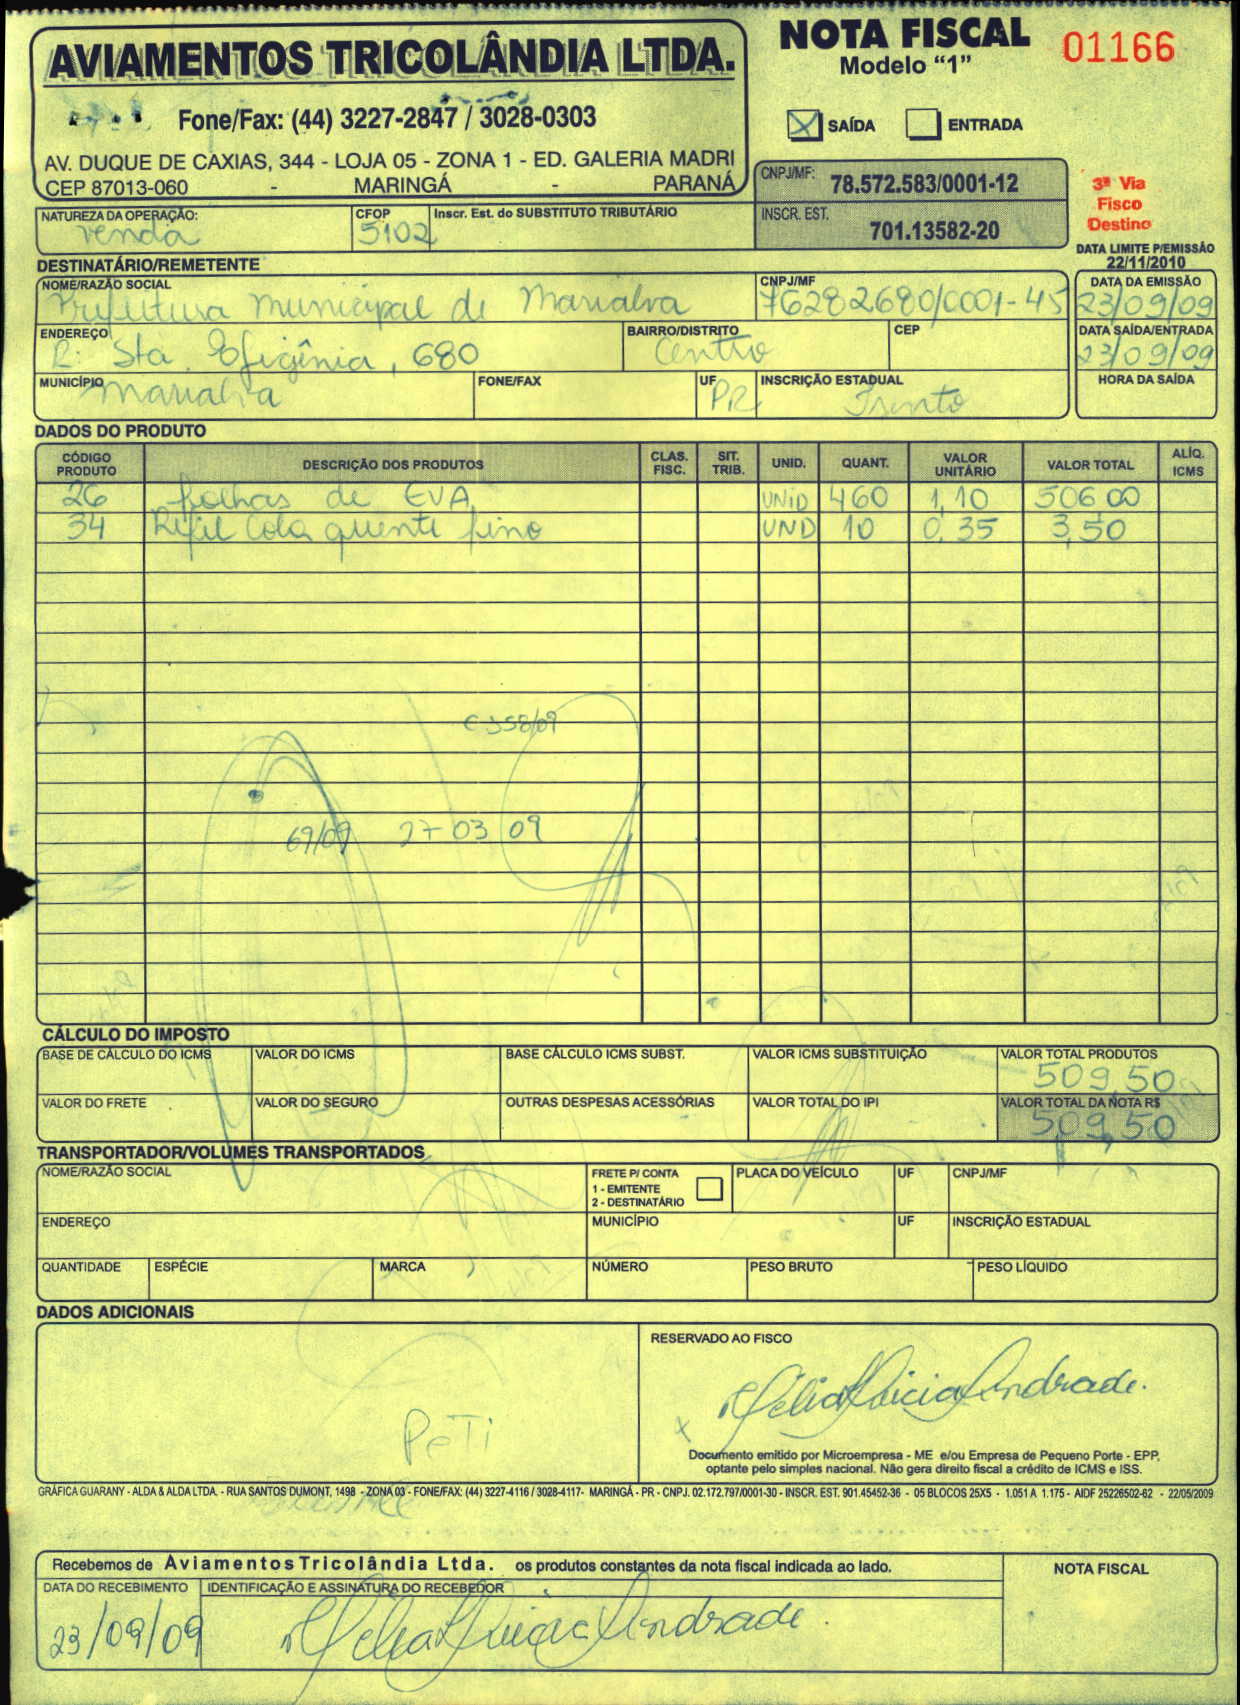 AVIAMENTOS TRICOLÂNDIA LTDA.
Fone/Fax: (44) 3227-2847 / 3028-0303
AV. DUQUE DE CAXIAS, 344 - LOJA 05 - ZONA 1 - ED. GALERIA MADRI
CEP 87013-060 - MARINGÁ - PARANÁ
NOTA FISCAL
Modelo “1”
01166
SAÍDA ENTRADA
CNPJ/MF: 78.572.583/0001-12
INSCR. EST. 701.13582-20
3ª Via
Fisco
Destino
DATA LIMITE P/EMISSÃO
22/11/2010
NATUREZA DA OPERAÇÃO: CFOP Inscr. Est. do SUBSTITUTO TRIBUTÁRIO
Venda 5102
DESTINATÁRIO/REMETENTE
NOME/RAZÃO SOCIAL CNPJ/MF DATA DA EMISSÃO
Prefeitura Municipal de Marialva 76282680/0001-45 23/09/09
ENDEREÇO BAIRRO/DISTRITO CEP DATA SAÍDA/ENTRADA
R: Sta. Efigênia, 680 Centro 23/09/09
MUNICÍPIO FONE/FAX UF INSCRIÇÃO ESTADUAL HORA DA SAÍDA
Marialva PR Isento
DADOS DO PRODUTO
CÓDIGO PRODUTO DESCRIÇÃO DOS PRODUTOS CLAS. FISC. SIT. TRIB. UNID. QUANT. VALOR UNITÁRIO VALOR TOTAL ALÍQ. ICMS
26 folhas de EVA UNID 460 1,10 506,00
34 Refil Cola quente fino UND 10 0,35 3,50
69/09 27 03 09
CÁLCULO DO IMPOSTO
BASE DE CÁLCULO DO ICMS VALOR DO ICMS BASE CÁLCULO ICMS SUBST. VALOR ICMS SUBSTITUIÇÃO VALOR TOTAL PRODUTOS
509,50
VALOR DO FRETE VALOR DO SEGURO OUTRAS DESPESAS ACESSÓRIAS VALOR TOTAL DO IPI VALOR TOTAL DA NOTA R$
509,50
TRANSPORTADOR/VOLUMES TRANSPORTADOS
NOME/RAZÃO SOCIAL FRETE P/ CONTA 1 - EMITENTE 2 - DESTINATÁRIO PLACA DO VEÍCULO UF CNPJ/MF
ENDEREÇO MUNICÍPIO UF INSCRIÇÃO ESTADUAL
QUANTIDADE ESPÉCIE MARCA NÚMERO PESO BRUTO PESO LÍQUIDO
DADOS ADICIONAIS
RESERVADO AO FISCO
Andrade.
PeTi
x
Documento emitido por Microempresa - ME e/ou Empresa de Pequeno Porte - EPP,
optante pelo simples nacional. Não gera direito fiscal a crédito de ICMS e ISS.
GRÁFICA GUARANY - ALDA & ALDA LTDA. - RUA SANTOS DUMONT, 1498 - ZONA 03 - FONE/FAX: (44) 3227-4116 / 3028-4117- MARINGÁ - PR - CNPJ. 02.172.797/0001-30 - INSCR. EST. 901.45452-36 - 05 BLOCOS 25X5 - 1.051 A 1.175 - AIDF 25226502-62 - 22/05/2009
Recebemos de Aviamentos Tricolândia Ltda. os produtos constantes da nota fiscal indicada ao lado.
NOTA FISCAL
DATA DO RECEBIMENTO IDENTIFICAÇÃO E ASSINATURA DO RECEBEDOR
23/09/09 Andrade.